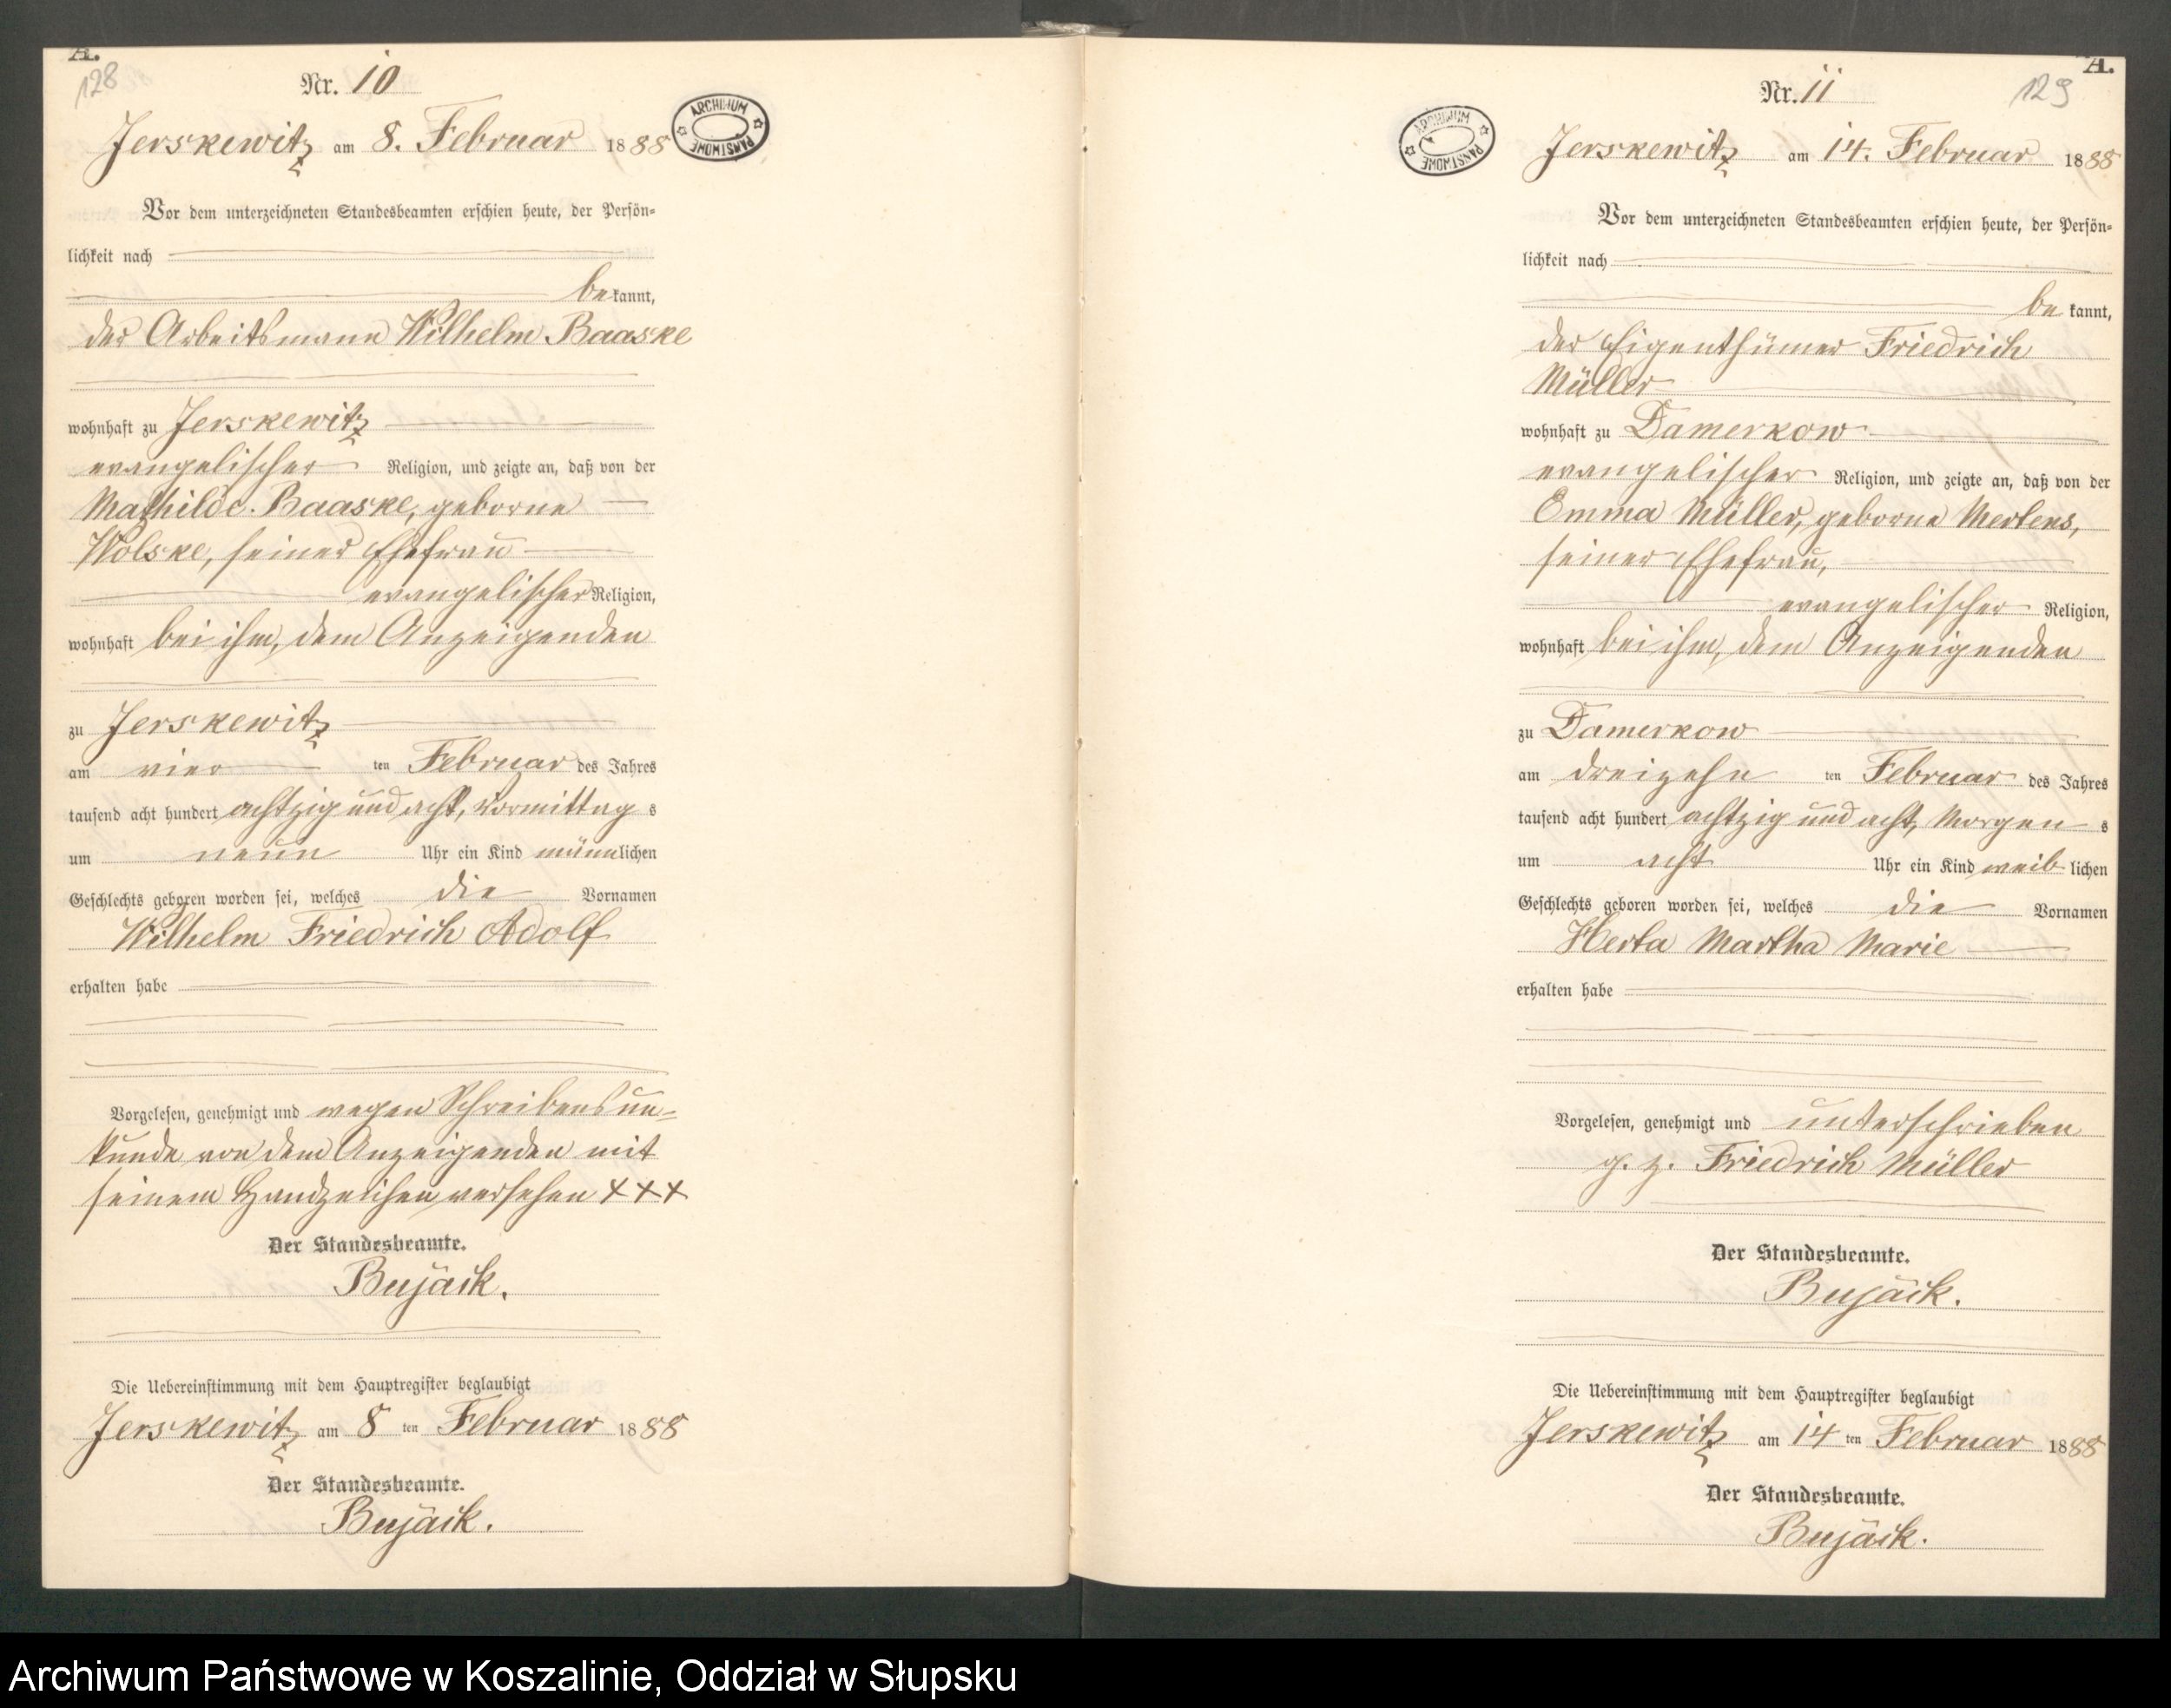 A.
128
Nr. 10
Jerskewitz am 8. Februar 1888
ARCHIWUM PAŃSTWOWE
Vor dem unterzeichneten Standesbeamten erschien heute, der Persön=
lichkeit nach
be kannt,
der Arbeitsmann Wilhelm Baaske
wohnhaft zu Jerskewitz
evangelischer Religion, und zeigte an, daß von der
Mathilde Baaske, geborne
Wolske, seiner Ehefrau
evangelischer Religion,
wohnhaft bei ihm, dem Anzeigenden
zu Jerskewitz
am vier ten Februar des Jahres
tausend acht hundert achtzig und acht, Vormittag s
um neun Uhr ein Kind männlichen
Geschlechts geboren worden sei, welches die Vornamen
Wilhelm Friedrich Adolf
erhalten habe
Vorgelesen, genehmigt und wegen Schreibensun=
kunde von dem Anzeigenden mit
seinem Handzeichen versehen +++
Der Standesbeamte.
Bujäck.
Die Uebereinstimmung mit dem Hauptregister beglaubigt
Jerskewitz am 8 ten Februar 1888
Der Standesbeamte.
Bujäck.
A.
129
Nr. 11
ARCHIWUM PAŃSTWOWE
Jerskewitz am 14. Februar 1888
Vor dem unterzeichneten Standesbeamten erschien heute, der Persön=
lichkeit nach
be kannt,
der Eigenthümer Friedrich
Müller
wohnhaft zu Damerkow
evangelischer Religion, und zeigte an, daß von der
Emma Müller, geborne Mertens,
seiner Ehefrau,
evangelischer Religion,
wohnhaft bei ihm, dem Anzeigenden
zu Damerkow
am dreizehn ten Februar des Jahres
tausend acht hundert achtzig und acht, Morgen s
um acht Uhr ein Kind weib lichen
Geschlechts geboren worden sei, welches die Vornamen
Herta Martha Marie
erhalten habe
Vorgelesen, genehmigt und unterschrieben
g. z. Friedrich Müller
Der Standesbeamte.
Bujäck.
Die Uebereinstimmung mit dem Hauptregister beglaubigt
Jerskewitz am 14 ten Februar 1888
Der Standesbeamte.
Bujäck.
Archiwum Państwowe w Koszalinie, Oddział w Słupsku